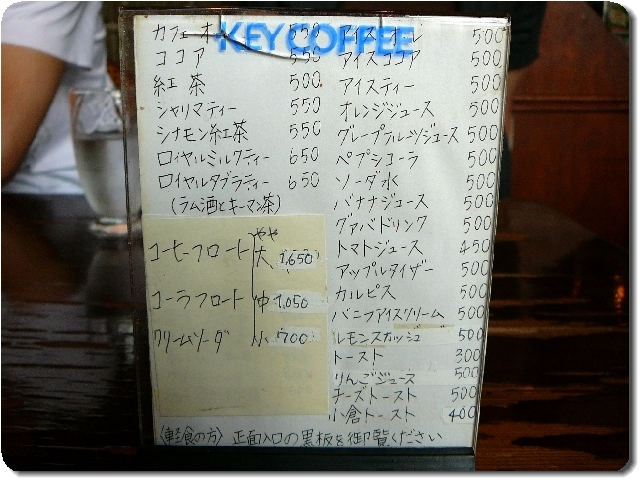 KEY COFFEE
カフェオ 550
ココア 550
紅茶 500
シャリマティー 550
シナモン紅茶 550
ロイヤルミルクティー 650
ロイヤルタブラティー 650
(ラム酒とキーマン茶)
コーヒーフロート やや大 1,650
コーラフロート 仲 1,050
クリームソーダ 小 700
アイスオーレ 500
アイスココア 500
アイスティー 500
オレンジジュース 500
グレープフルーツジュース 500
ペプシコーラ 500
ソーダ水 500
バナナジュース 500
グァバドリンク 500
トマトジュース 450
アップルタイザー 500
カルピス 500
バニラアイスクリーム 500
レモンスカッシュ 500
トースト 300
りんごジュース 500
チーズトースト 500
小倉トースト 400
〈軽食の方〉正面入口の黒板を御覧ください